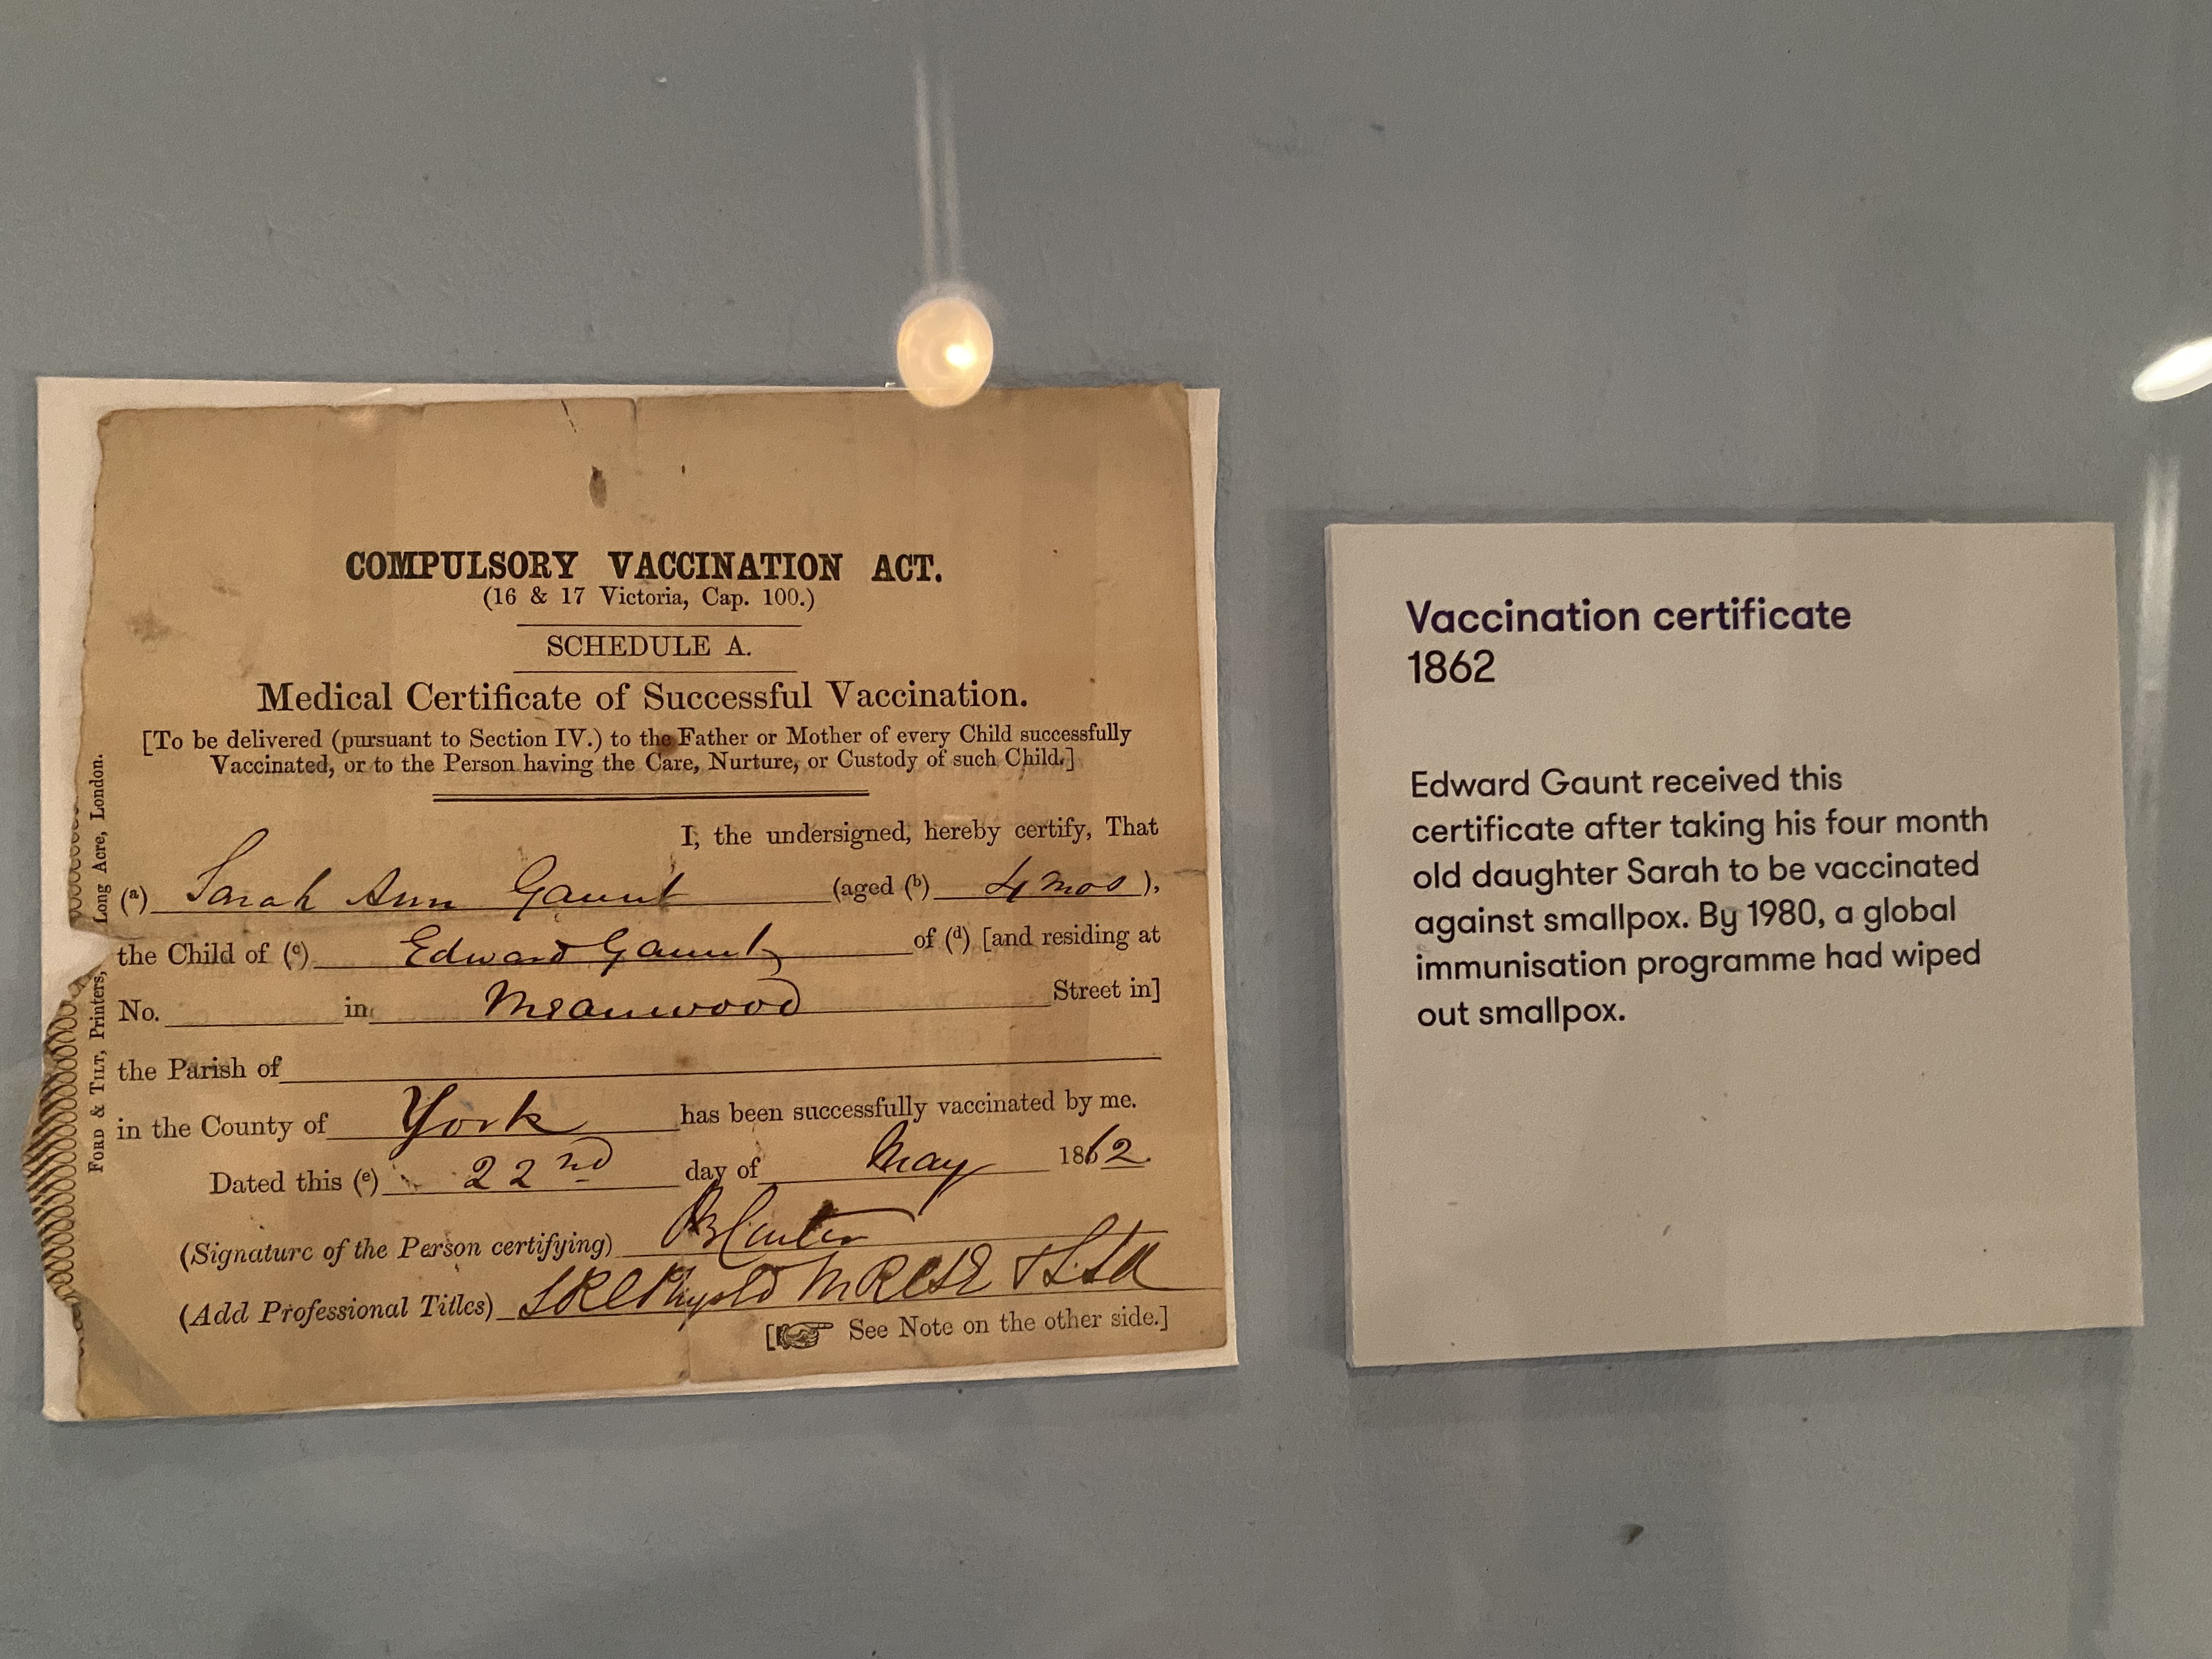 COMPULSORY VACCINATION ACT.
(16 & 17 Victoria, Cap. 100.)
SCHEDULE A.
Medical Certificate of Successful Vaccination.
[To be delivered (pursuant to Section IV.) to the Father or Mother of every Child successfully
Vaccinated, or to the Person having the Care, Nurture, or Custody of such Child.]
I, the undersigned, hereby certify, That
(a) Sarah Ann Gaunt (aged (b) 4 mos ),
the Child of (c) Edward Gaunt of (d) [and residing at
No. in Meanwood Street in]
the Parish of
in the County of York has been successfully vaccinated by me.
Dated this (e) 22nd day of May 1862.
(Signature of the Person certifying)
(Add Professional Titles)
[☞ See Note on the other side.]
FORD & TILT, Printers, Long Acre, London.
Vaccination certificate
1862
Edward Gaunt received this
certificate after taking his four month
old daughter Sarah to be vaccinated
against smallpox. By 1980, a global
immunisation programme had wiped
out smallpox.